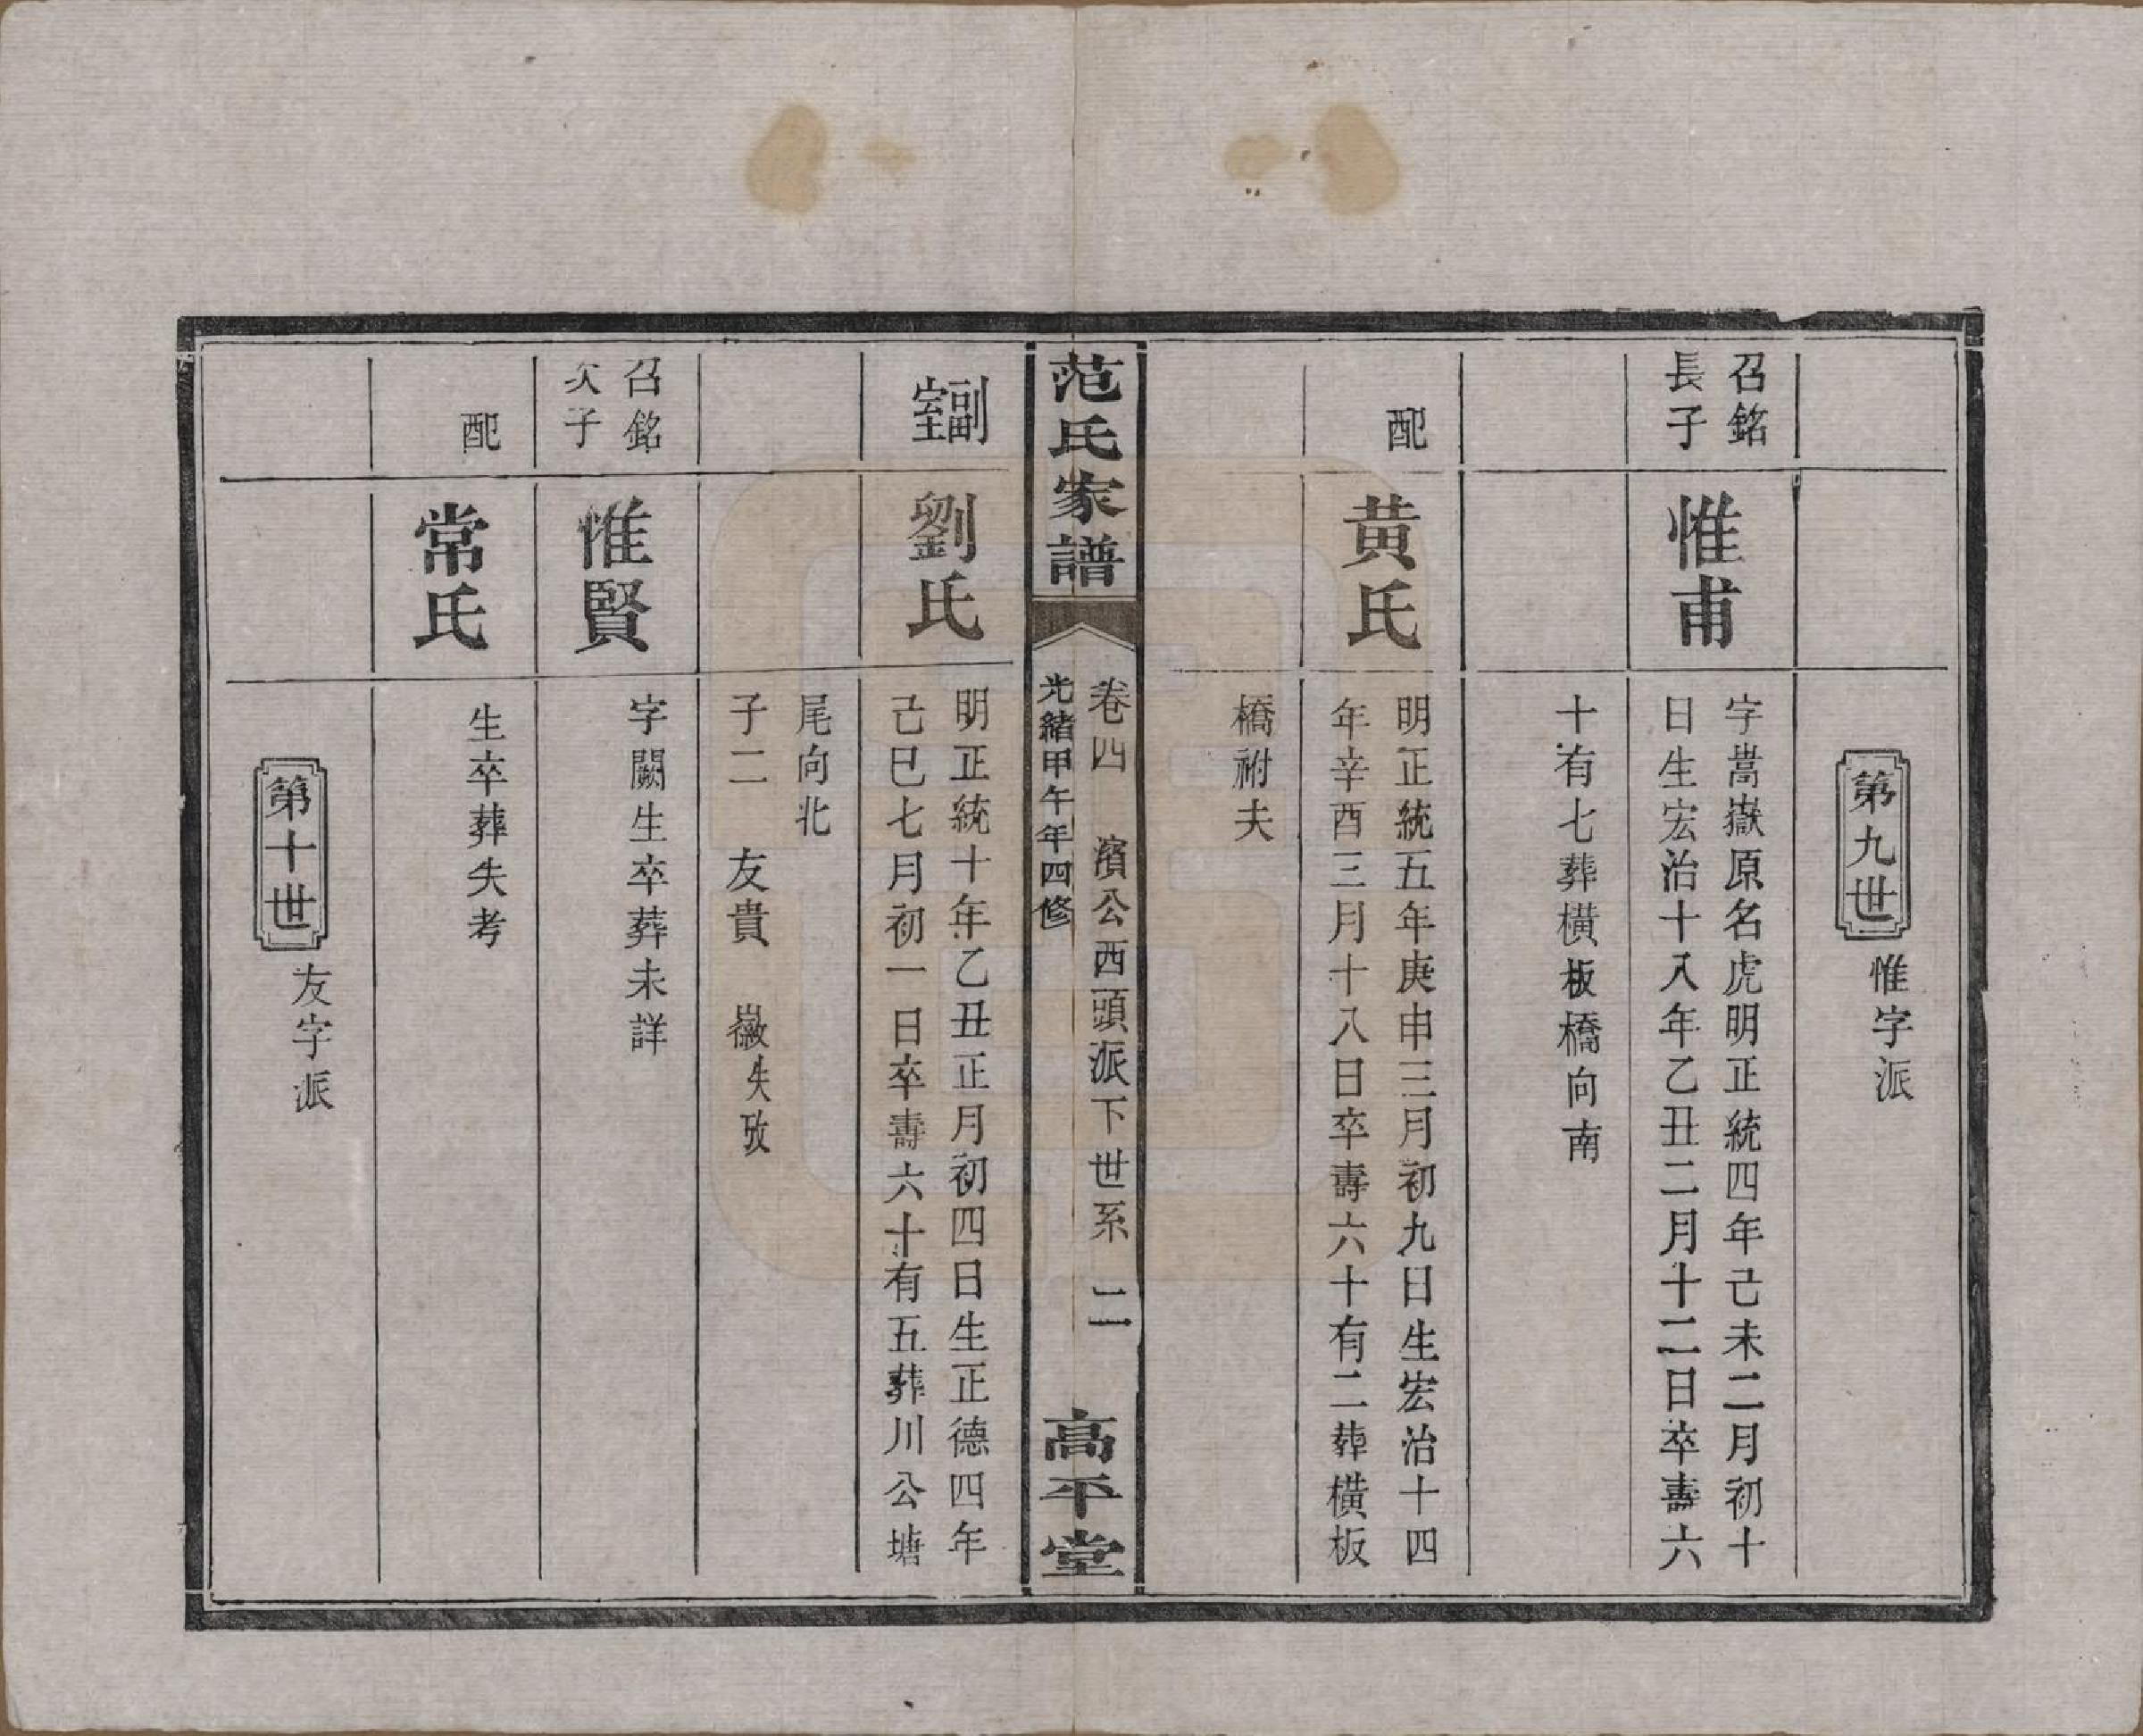 第九世 惟字派
召銘
長子
惟甫
字嵩嶽原名虎明正統四年己未二月初十
日生宏治十八年乙丑二月十二日卒壽六
十有七葬橫板橋向南
配
黄氏
明正統五年庚申三月初九日生宏治十四
年辛酉三月十八日卒壽六十有二葬橫板
橋祔夫
范氏家譜
卷四 濱公西頭派下世系 二
光緒甲午年四修
高平堂
副室
劉氏
明正統十年乙丑正月初四日生正德四年
己巳七月初一日卒壽六十有五葬川公塘
尾向北
子二 友貴 嶶失攷
召銘
次子
惟賢
字闕生卒葬未詳
配
常氏
生卒葬失考
第十世 友字派